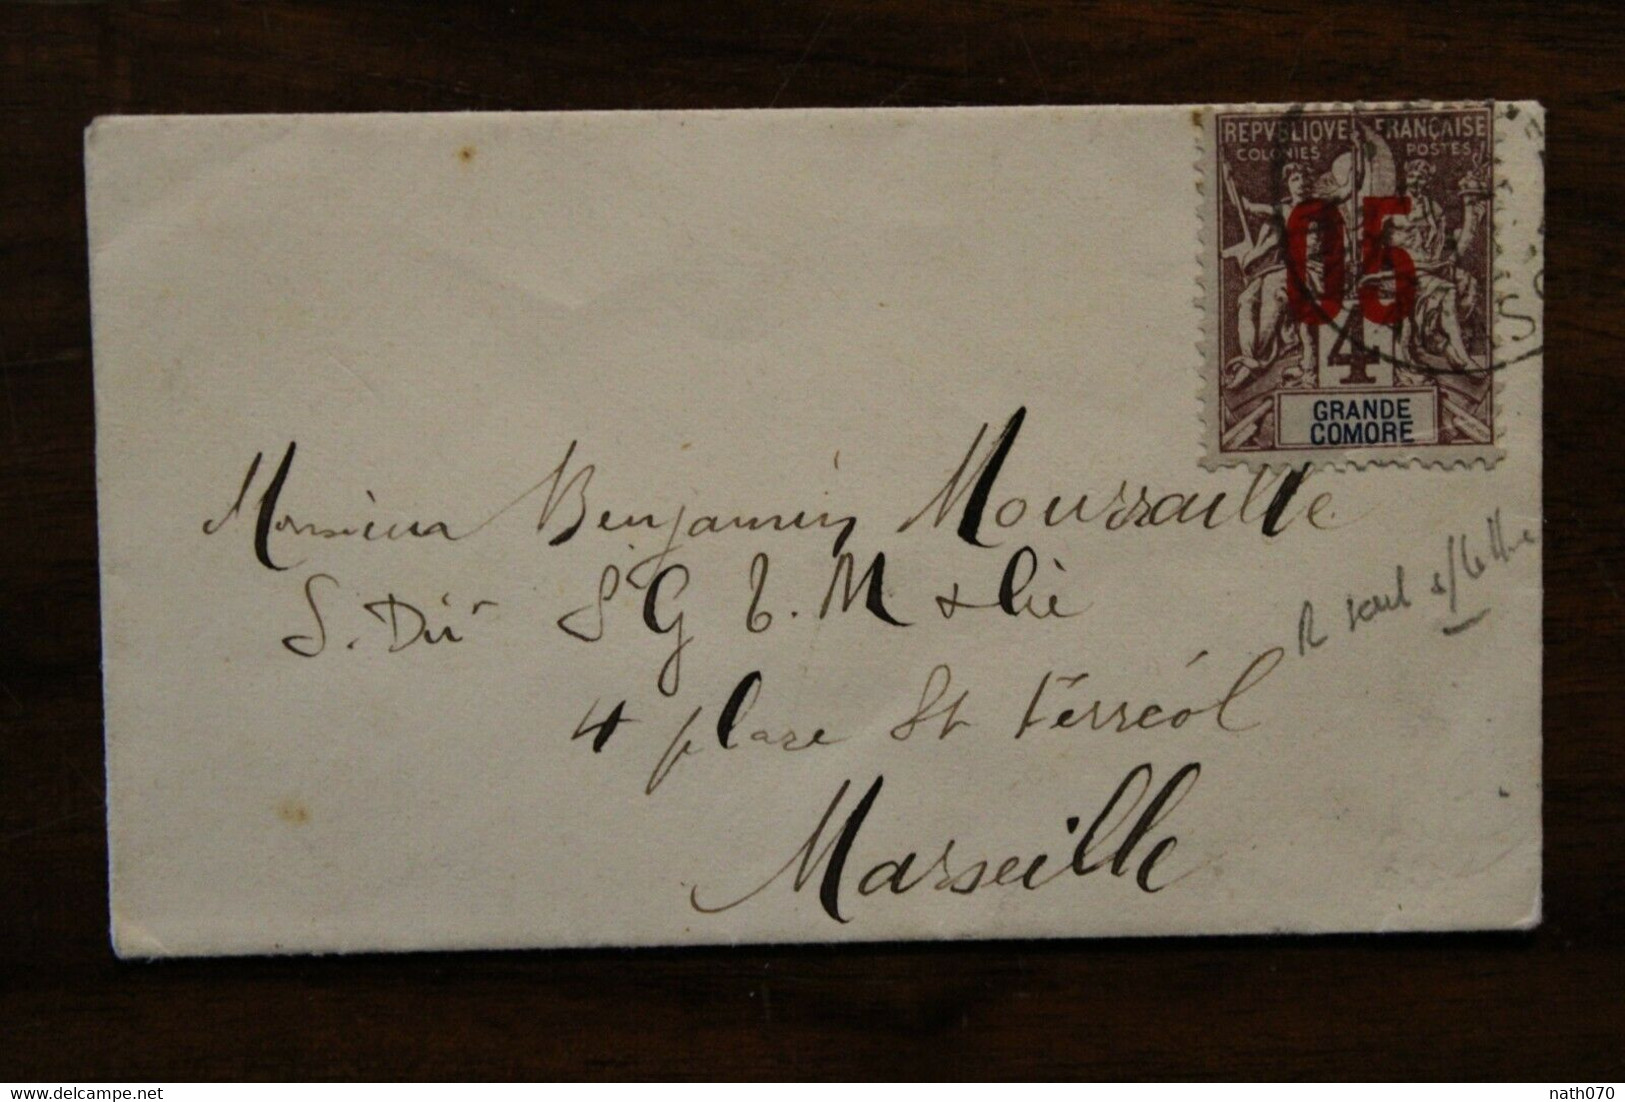 REPVBLIQUE FRANÇAISE
COLONIES POSTES
05
4
GRANDE
COMORE
Monsieur Benjamin Mourraille
S. Dir S G T. M & Cie
4 place St Ferréol
Marseille
R seul s/lettre
nath070